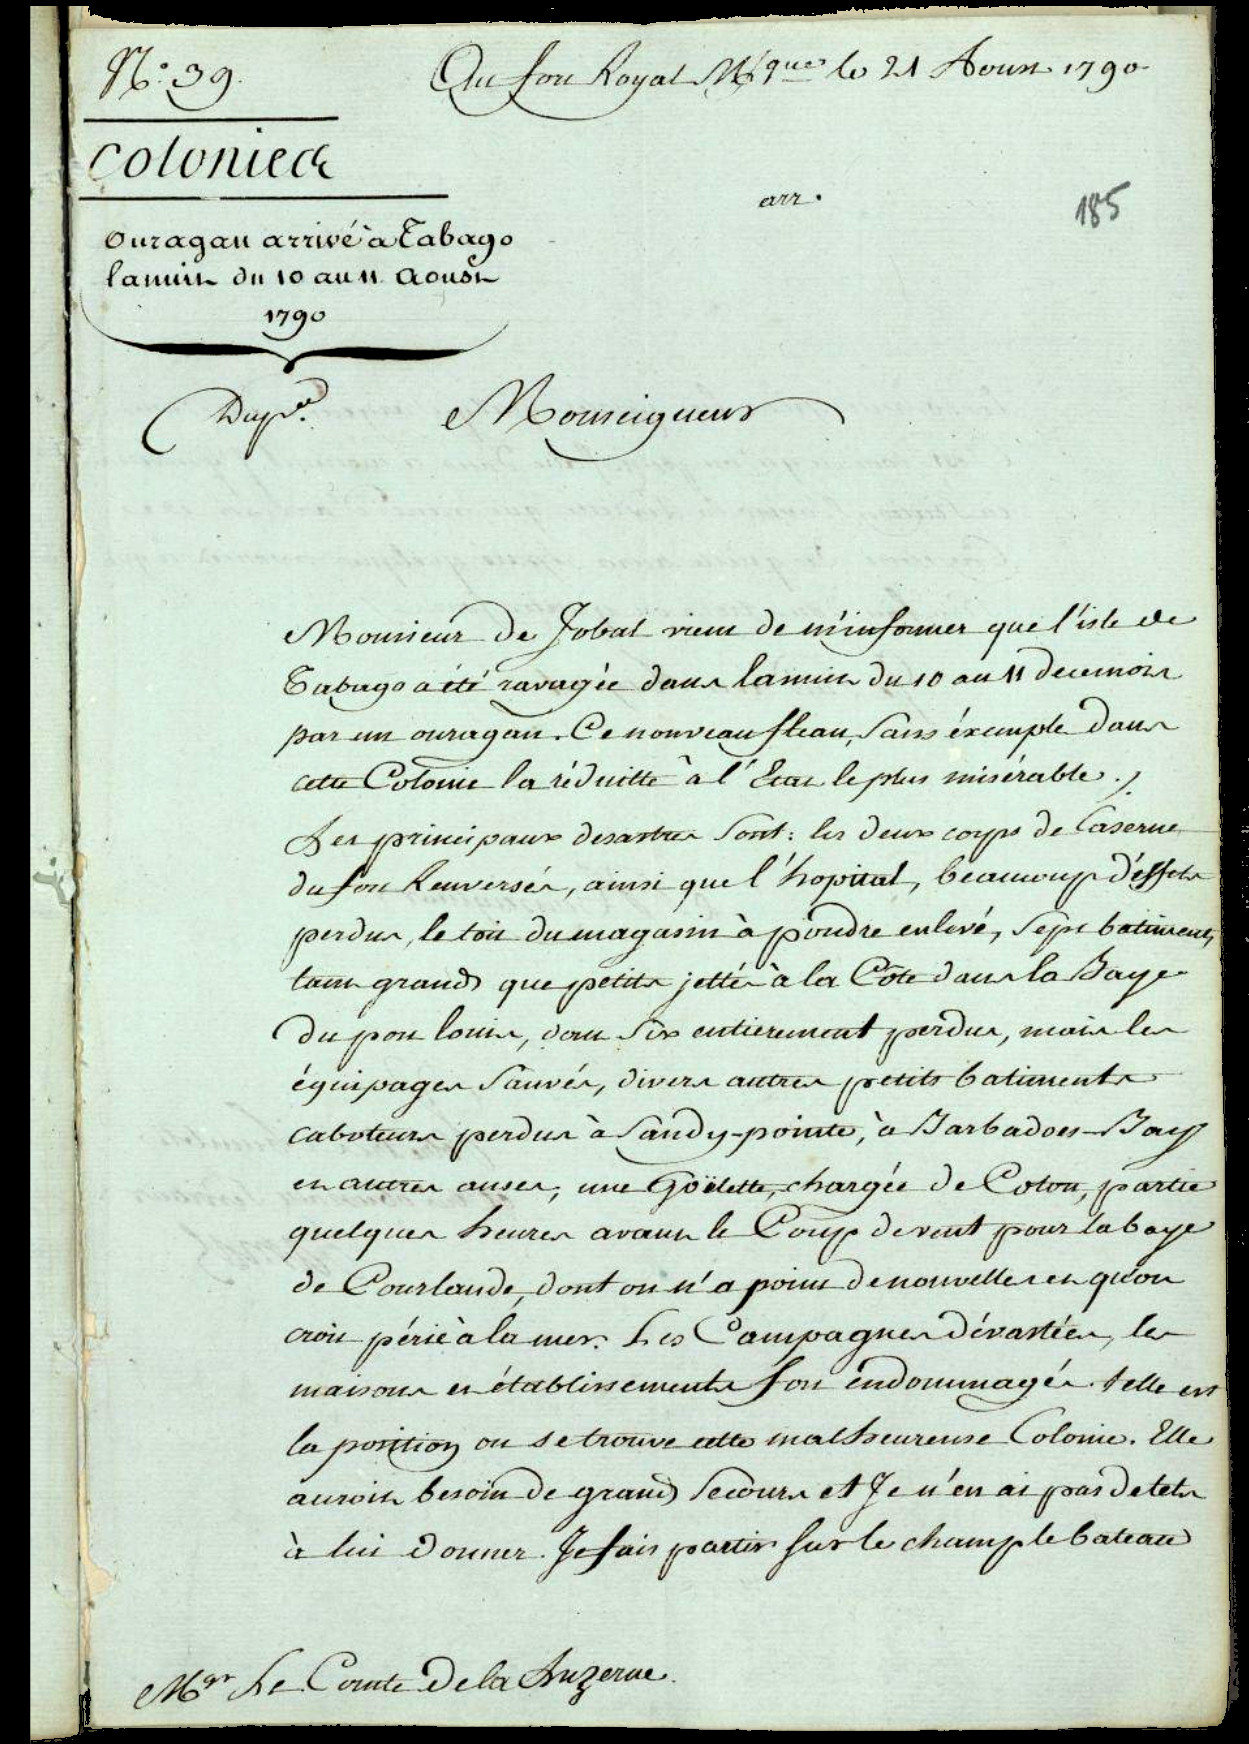 N.º 39.
Au fort Royal M/que le 21 Aoust 1790
Colonies
arr.
185
Ouragan arrivé à Tabago
la nuit du 10 au 11 Aoust
1790
Dup.ta
Monseigneur
Monsieur de Jobal vient de m'informer que l'isle de
Tabago a été ravagée dans la nuit du 10 au 11 de ce mois
par un ouragan. Ce nouveau fleau, sans éxemple dans
cette Colonie la réduitte à l'Etat le plus misérable.
Les principaux desastres sont: les deux corps de Caserne
du fort Renversés, ainsi que l'hopital, beaucoup d'éffets
perdus, le toit du magasin à poudre enlevé, sept batiments,
tant grands que petits jettés à la Côte dans la Baye
du port louis, dont six entierement perdus, mais les
équipages sauvés, divers autres petits batiments
caboteurs perdus à Sandy-pointe, à Barbadoes-Bay
et autres anses; une Goëlette, chargée de Coton, partie
quelques heures avant le Coup de vent pour la baye
de Courlande, dont on n'a point de nouvelles et qu'on
croit périe à la mer. Les Campagnes dévastées, les
maisons et établissements fort endommagés. telle est
la position ou se trouve cette malheureuse Colonie. Elle
auroit besoin de grands secours et Je n'en ai pas de tels
à lui donner. Je fais partir sur le champ le bateau
Mgr Le Comte De la Luzerne.